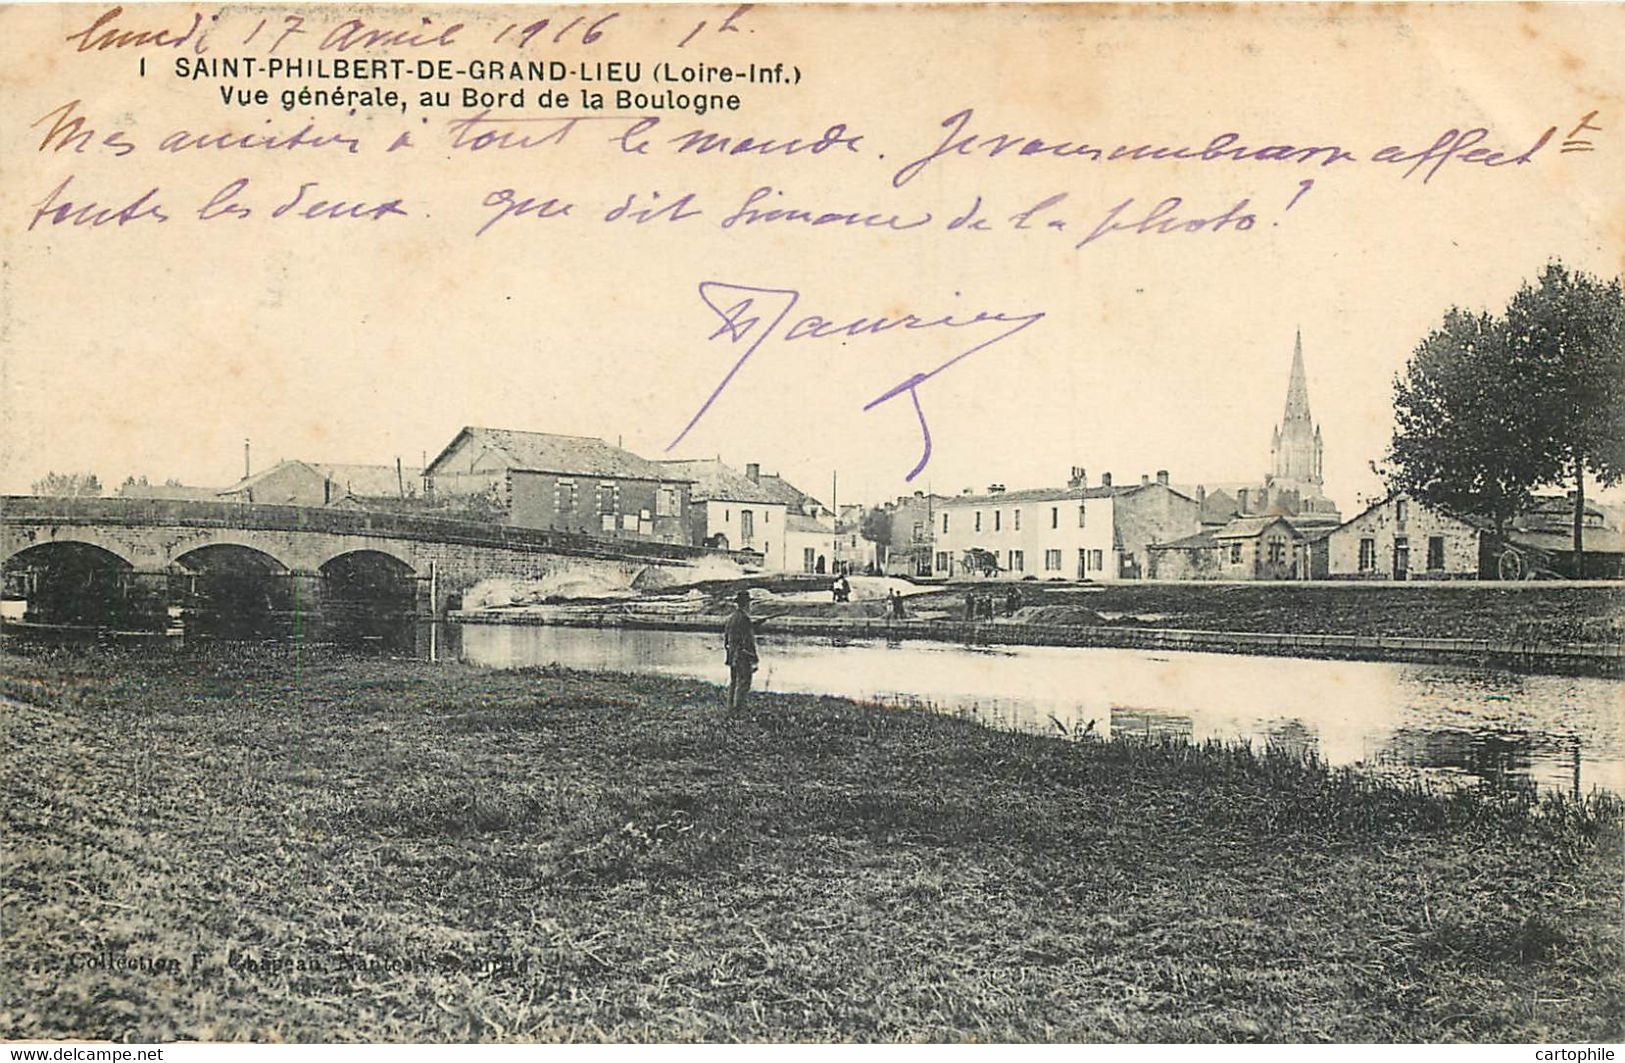 lundi 17 Avril 1916 1h.
1 SAINT-PHILBERT-DE-GRAND-LIEU (Loire-Inf.)
Vue générale, au Bord de la Boulogne
Mes amitiés à tout le monde. Je vous embrasse affect t
toutes les deux. que dit Simone de la photo!
Maurice
Collection F. Chapeau, Nantes
www.delcampe.net
cartophile